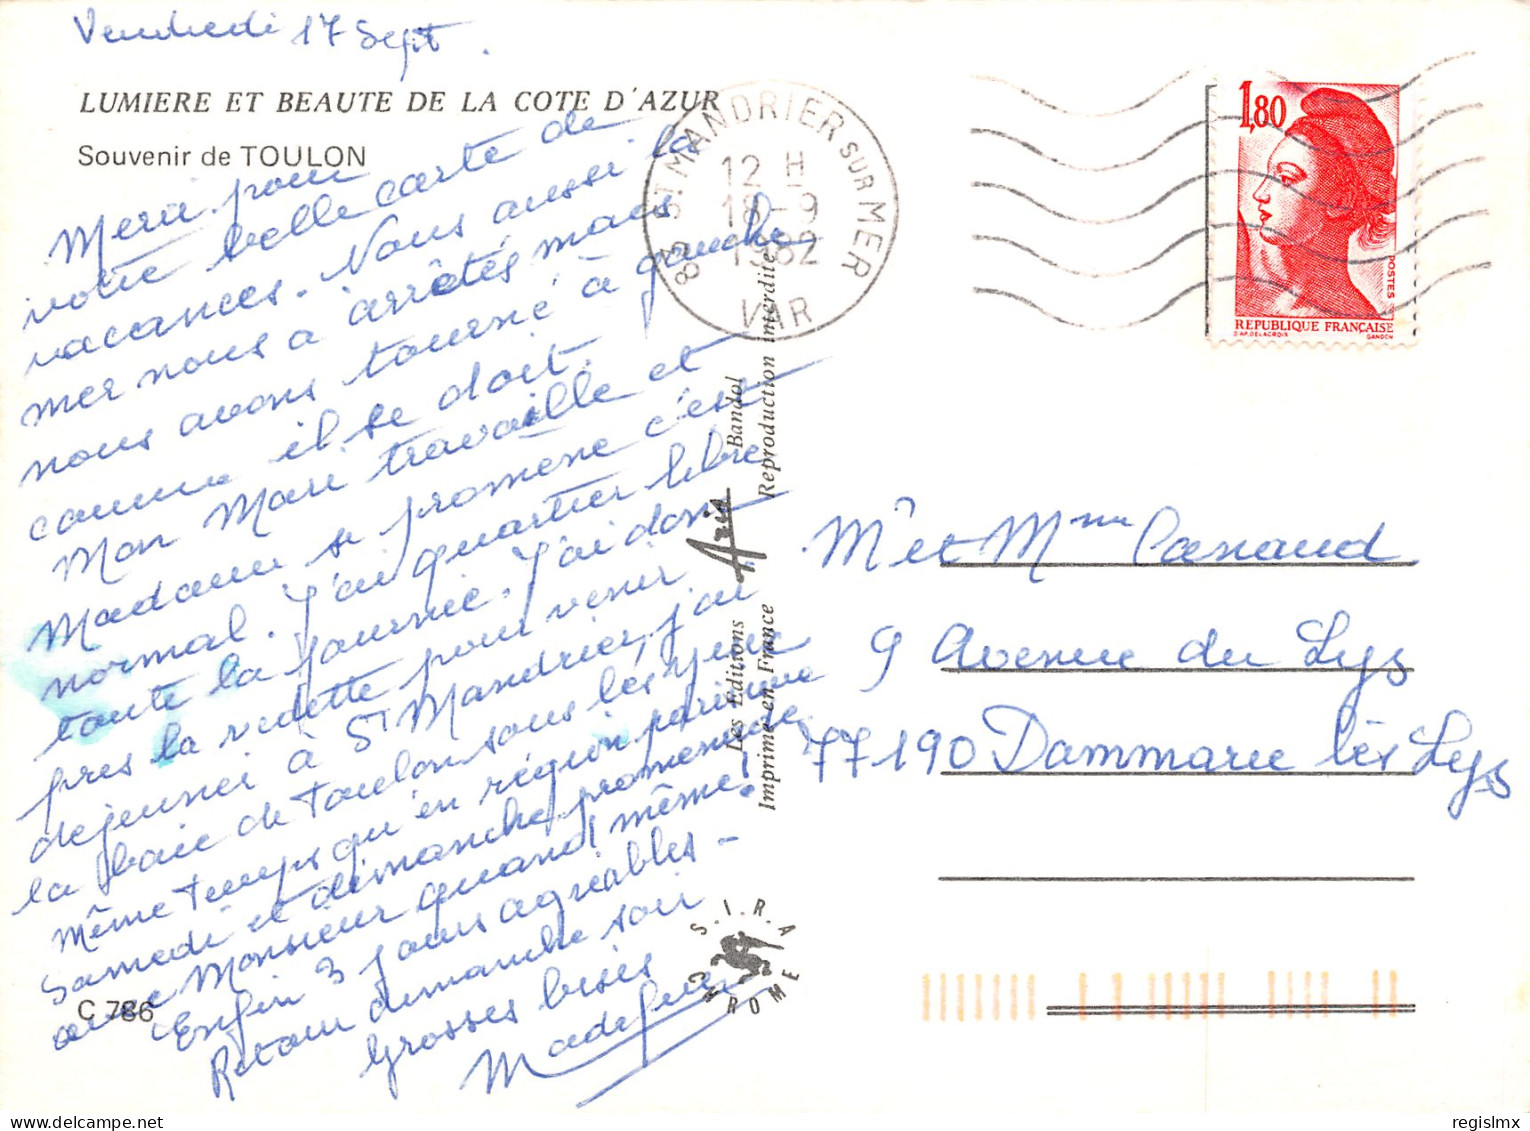 Vendredi 17 Sept.
LUMIERE ET BEAUTE DE LA COTE D'AZUR
Souvenir de TOULON
Merci pour
votre belle carte de
vacances. Nous aussi la
mer nous a arrêtés mais
nous avons tourné à gauche
comme il se doit.
Mon Mari travaille et
Madame se promene c'est
normal. J'ai quartier libre
toute la journée. J'ai donc
pres la vedette pour venir
dejeuner à St Mandrier, j'ai
la baie de Toulon sous les yeux
même temps qu'en région parisienne
Samedi et dimanche promenade
avec Monsieur quand même!
Enfin 3 jours agréables -
Retour dimanche soir
Grosses bises
C 786
83 ST MANDRIER SUR MER
12 H
18-9
1982
VAR
1,80
POSTES
REPUBLIQUE FRANÇAISE
D'AP. DELACROIX GANDON
Les Editions Aris Bandol
Imprimé en France Reproduction interdite
S.I.R.A
CHROME
Mr et Mme
9 Avenue du Lys
77190 Dammarie lès Lys
regislmx